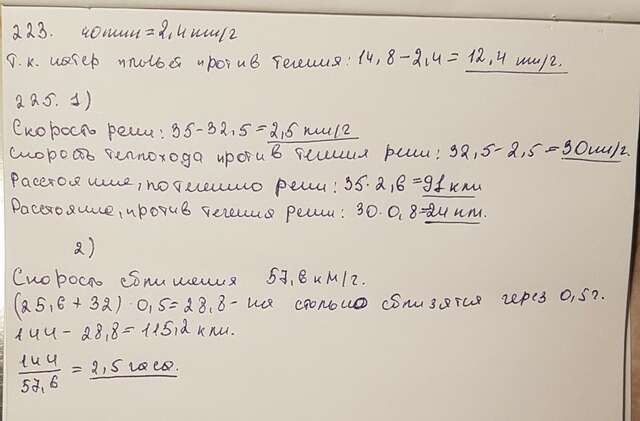 223. 40 мин = 2,4 км/г
Т.к. катер плывёт против течения: 14,8 - 2,4 = 12,4 км/г.
225. 1)
Скорость реки: 35 - 32,5 = 2,5 км/г
Скорость теплохода против течения реки: 32,5 - 2,5 = 30 км/г.
Расстояние, по течению реки: 35 · 2,6 = 91 км
Расстояние, против течения реки: 30 · 0,8 = 24 км.
2)
Скорость сближения 57,6 км/г.
(25,6 + 32) · 0,5 = 28,8 - на столько сблизятся через 0,5 г.
144 - 28,8 = 115,2 км.
144/57,6 = 2,5 часа.